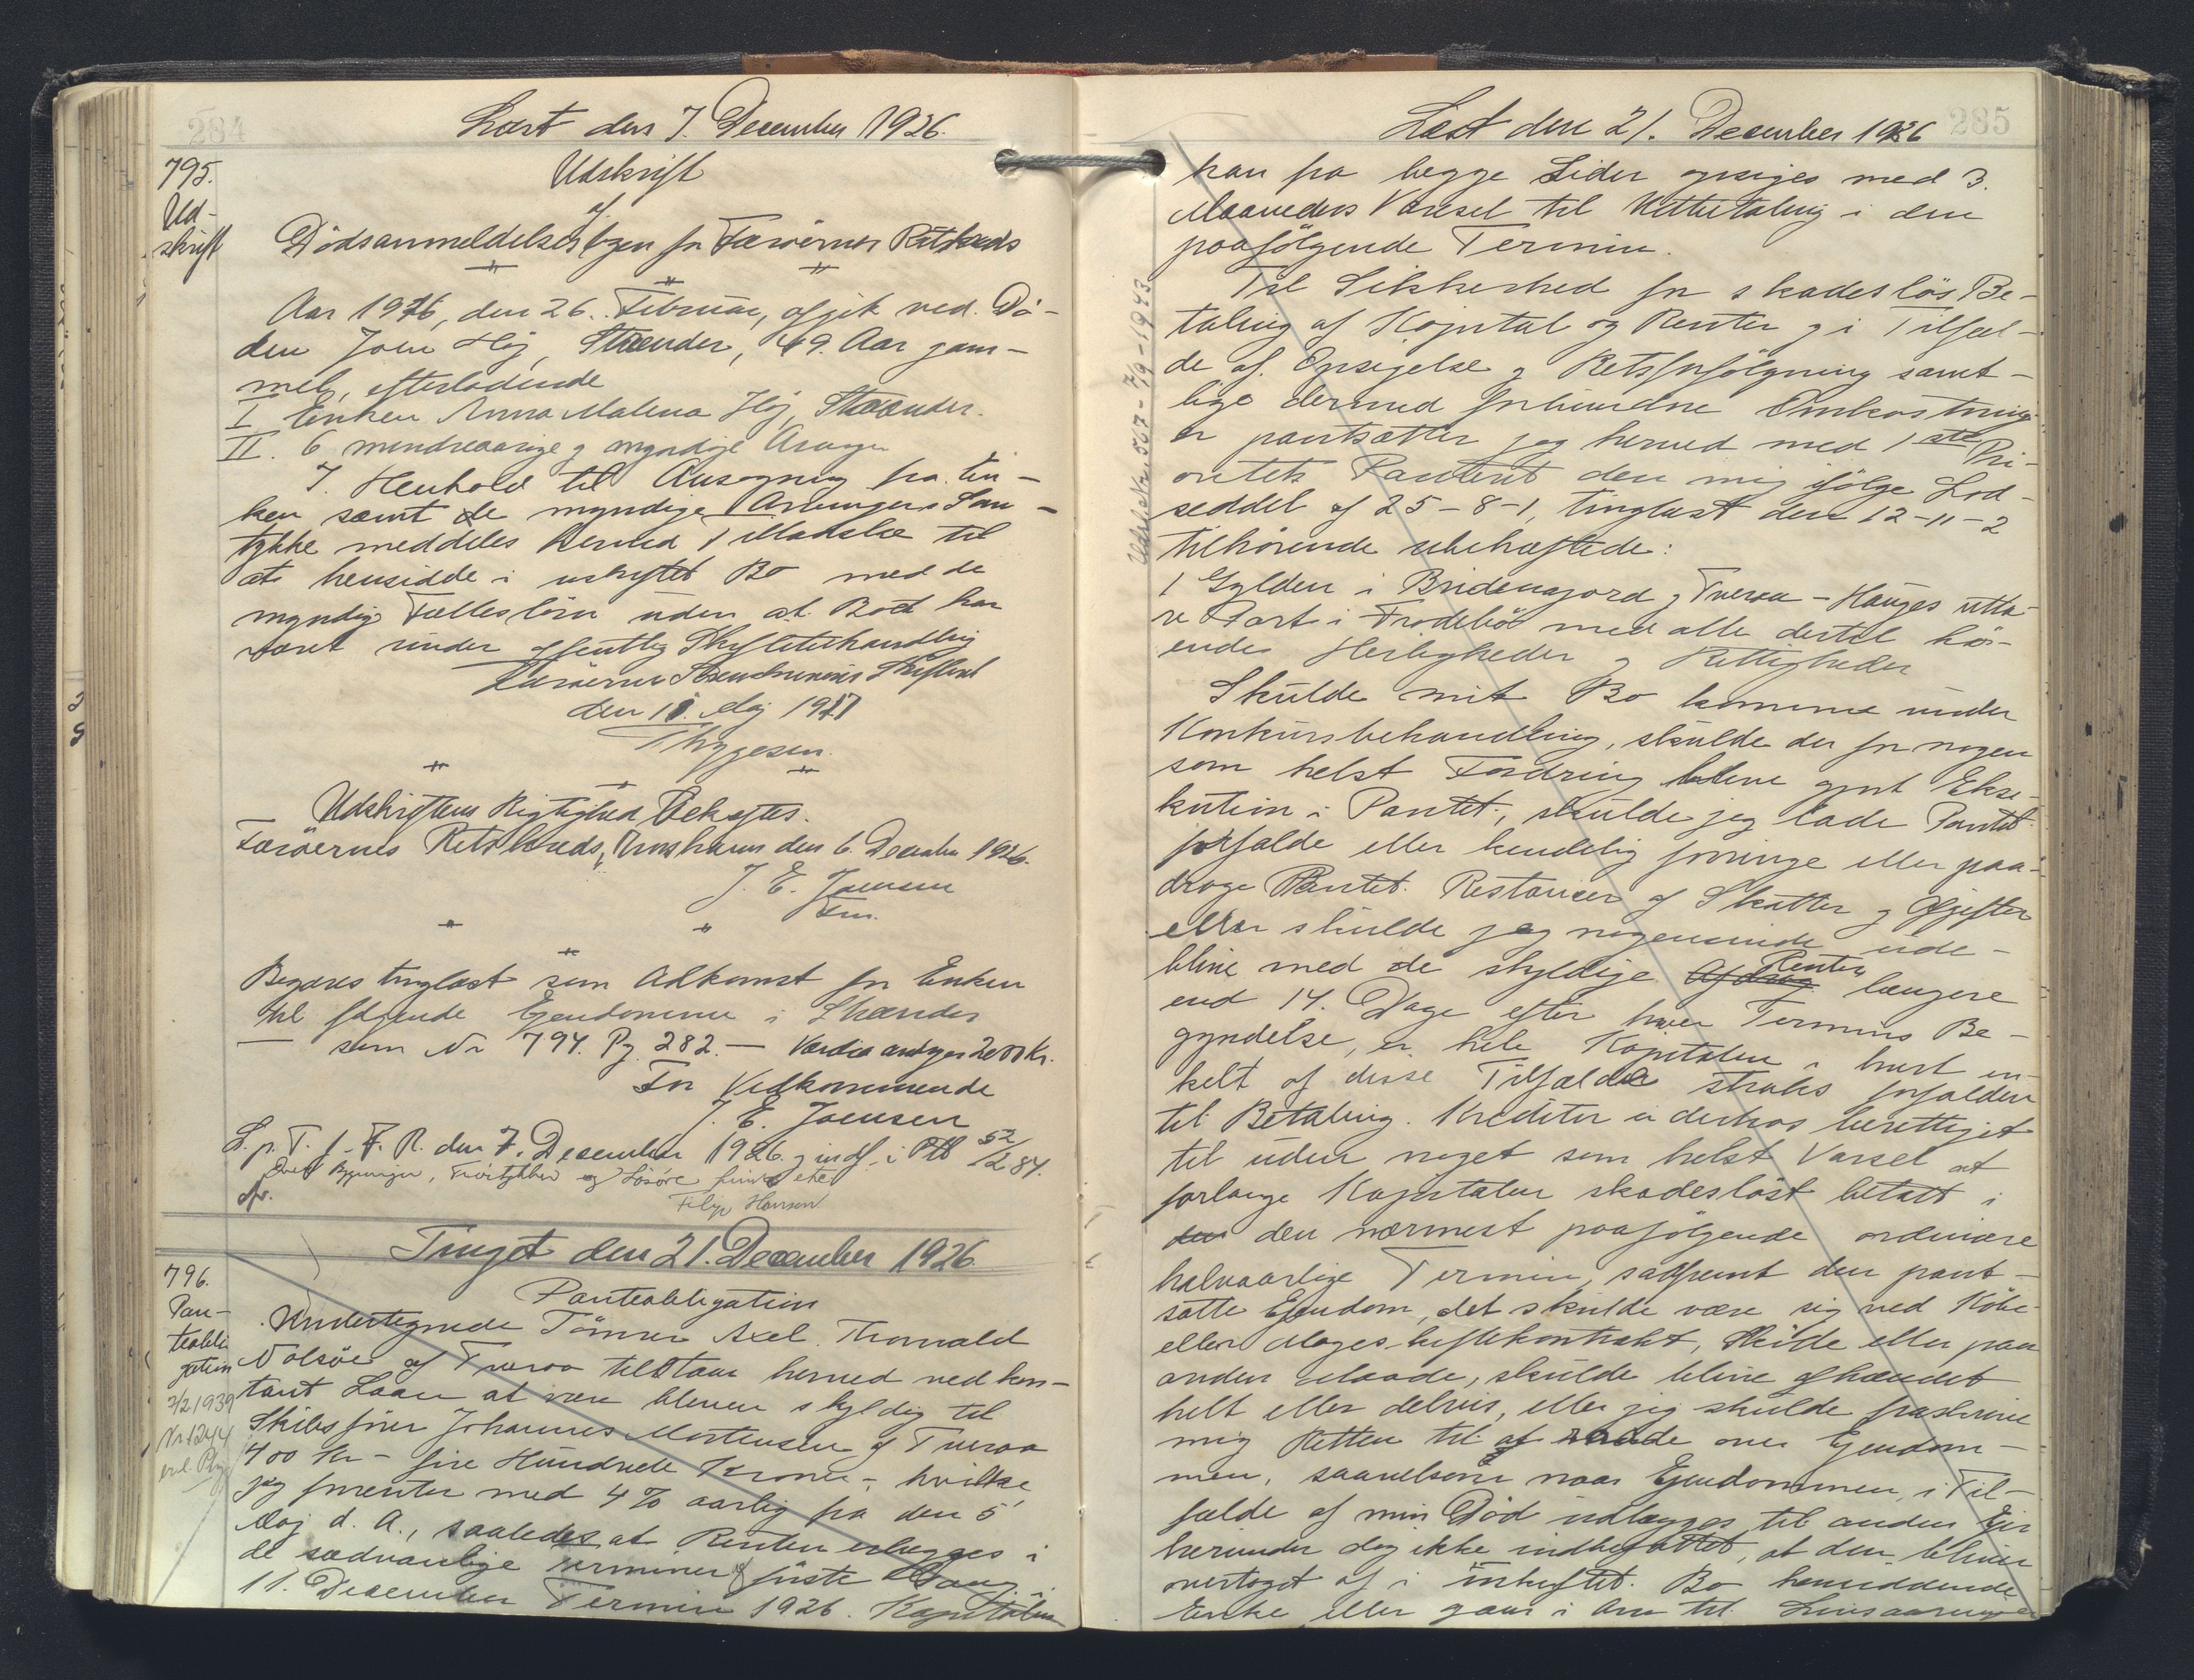 284
Læst den 7. December 1926.
795.
Ud-
skrift
Udskrift
af
Dödsanmeldelsesbogen for Færöernes Retskreds
Aar 1916, den 26. Februar, afgik ved Dö-
den Joen Høj, Skaander, 49. Aar gam-
mel, efterladende
I Enken Anna Malena Høj,
II. 6 mindreaarige og myndige Arvinger
I Henhold til Ansøgning fra En-
ken samt de myndige Arvingers Sam-
tykke meddeles herved Tilladelse til
at hensidde i uskiftet Bo med de
myndige Fællesbörn uden at Boet har
været under offentlig Skiftebehandling
Færöernes Skifteret
den 11. Maj 1917
Thygesen.
Udskriftens Rigtighed bekræftes.
Færöernes Retskreds, Thorshavn den 6. December 1926.
J. E. Joensen
Fm.
Begæres tinglæst som Adkomst for Enken
til følgende Ejendomme i
som Nr 794. Pg 282. — Værdien angives 2000 Kr.
For Vedkommende
J. E. Joensen
L. p. T. f. F. R. den 7. December 1926. og indf. i Ptb 52/284.
Bygninger, og Lösöre findes ikke
Filip Hansen
Tinget den 21. December 1926
796.
Pan-
teobli-
gation
7/2 1939
Nr 1244
Panteobligation
Undertegnede Tömrer Axel Thorvald
Nolsöe af Tveraa tilstaar herved ved kon-
tant Laan at være bleven skyldig til
Skibsförer Johannes Mortensen af Tveraa
400 Kr – fire Hundrede Kroner –, hvilke
jeg forrenter med 4 % aarlig fra den 5
Maj d. A., saaledes at Renten erlægges i
de sædvanlige Terminer förste Gang i
11. December Termin 1926. Kapitalen
285
Læst den 21. December 1926
Udsl. Nr. 567 - 7/9 - 1943
kan fra begge Sider opsiges med 3.
Maaneders Varsel til Udbetaling i den
paafölgende Termin.
Til Sikkerhed for skadeslös Be-
taling af Kapital og Renter og i Tilfæl-
de af Opsigelse og Retsforfölgning samt-
lige dermed forbundne Omkostning-
er pantsætter jeg herved med 1ste Pri-
oritets Panteret den mig ifölge Lod-
seddel af 25-8-1, tinglæst den 12-11-2
tilhörende ubehæftede:
1 Gylden i Bridensgjord, Tveraa – Hauges utta-
re Part i Frodebö med alle dertil hör-
ende Herligheder og Rettigheder
Skulde mit Bo komme under
Konkursbehandling, skulde der for nogen
som helst Fordring blive gjort Ekse-
kution i Pantet, skulde jeg lade Pantet
forfalde eller kendelig forringe eller paa-
drage Pantet Restancer af Skatter og Afgifter
eller skulde jeg nogensinde ude-
blive med de skyldige Afdrag Renter længere
end 14. Dage efter hver Termins Be-
gyndelse, er hele Kapitalen i hvert en-
kelt af disse Tilfælde straks forfalden
til Betaling. Kreditor er derhos berettiget
til uden noget som helst Varsel at
forlange Kapitalen skadeslöst betalt i
den den nærmest paafölgende ordinære
halvaarlige Termin, saafremt den pant-
satte Ejendom, det skulde være sig ved Köbe-
eller Mageskiftekontrakt, Sköde eller paa
anden Maade, skulde blive afhændet
helt eller delvis, eller jeg skulde fraskrive
mig Retten til at raade over Ejendom-
men, saavelsom naar Ejendommen, i Til-
fælde af min Död udlægges til anden Ejer
herunder dog ikke indbefattet, at den bliver
overtaget af i uskiftet Bo hensiddende
Enke eller gaar i Arv til Livsarvinger